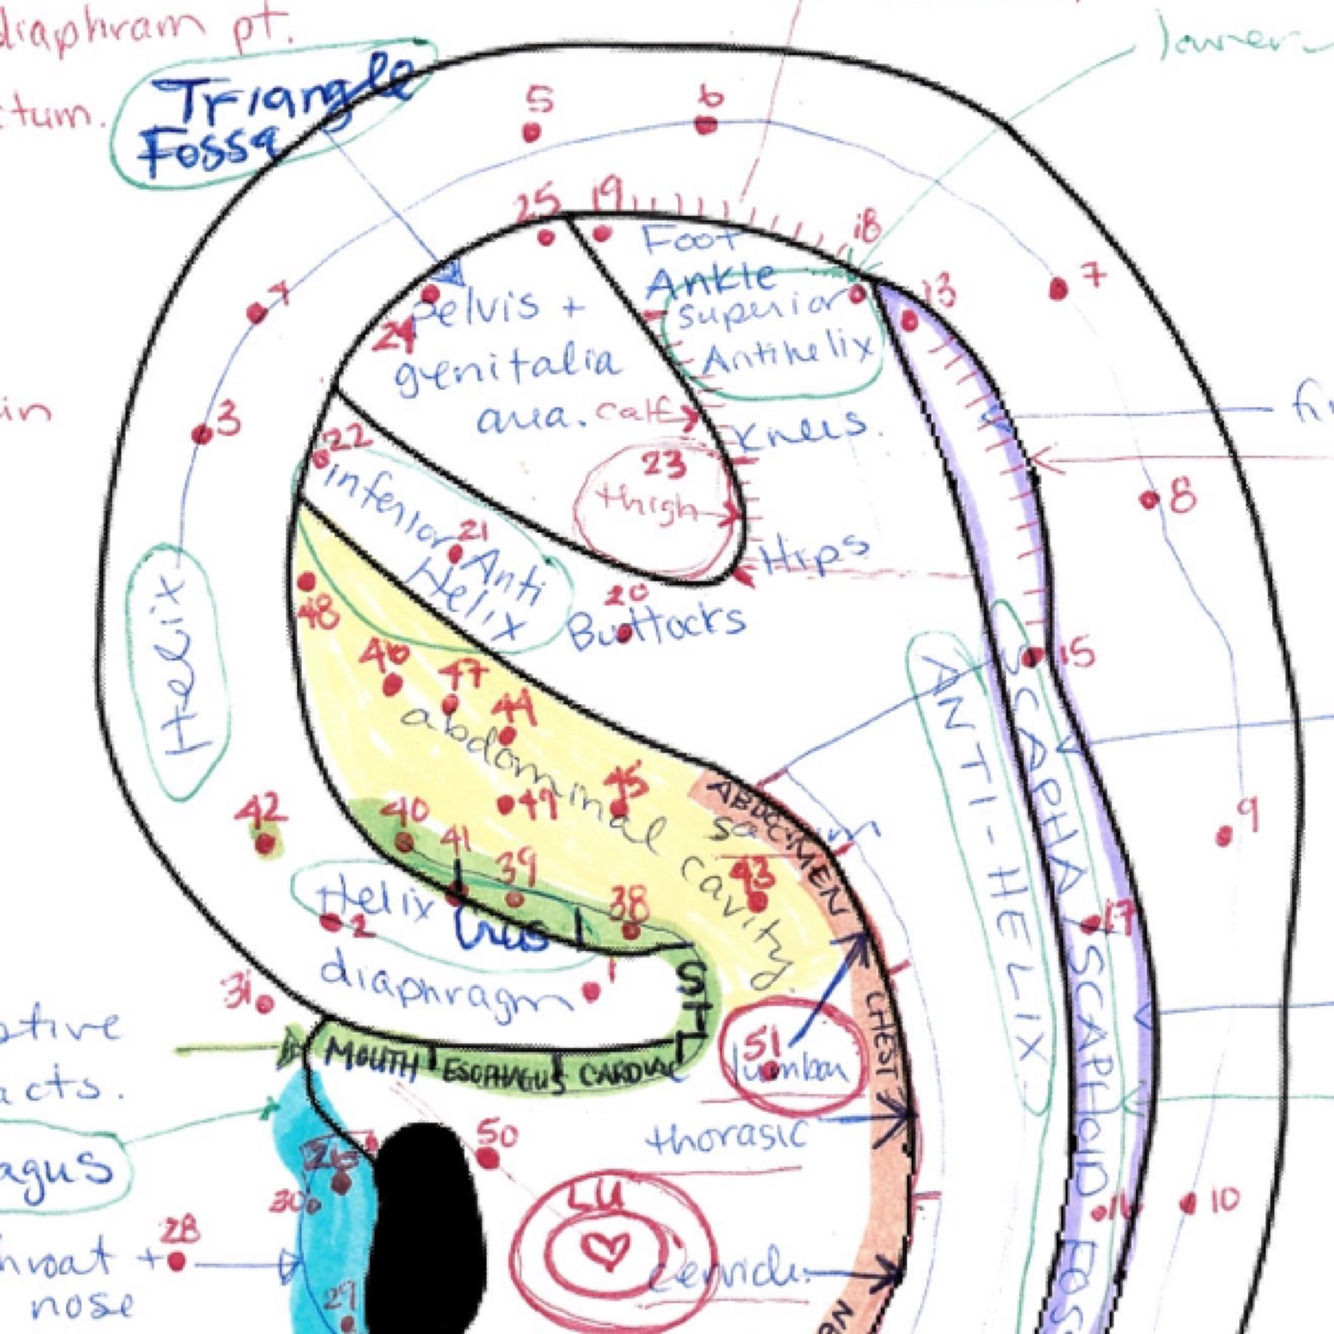 diaphram pt.
Triangle
Fossa
5
6
25
19
18
Foot
Ankle
Superior
Antihelix
13
7
Pelvis +
24
genitalia
calf
3
22
23
Knees.
thigh
8
inferior Anti
Helix
21
Hips
20
Buttocks
48
46
47
44
15
Helix
abdominal
cavity.
49
45
ABDOMEN
42
40
41
39
43
38
ANTI-HELIX
SCAPHA / SCAPHOID FOSS
9
17
Helix Crus
2
diaphragm
1
31
CHEST
MOUTH
ESOPHAGUS
CARDIAC
ST
51
lumbar
acts.
50
thorasic
agus
26
30
16
10
LU
28
+
nose
29